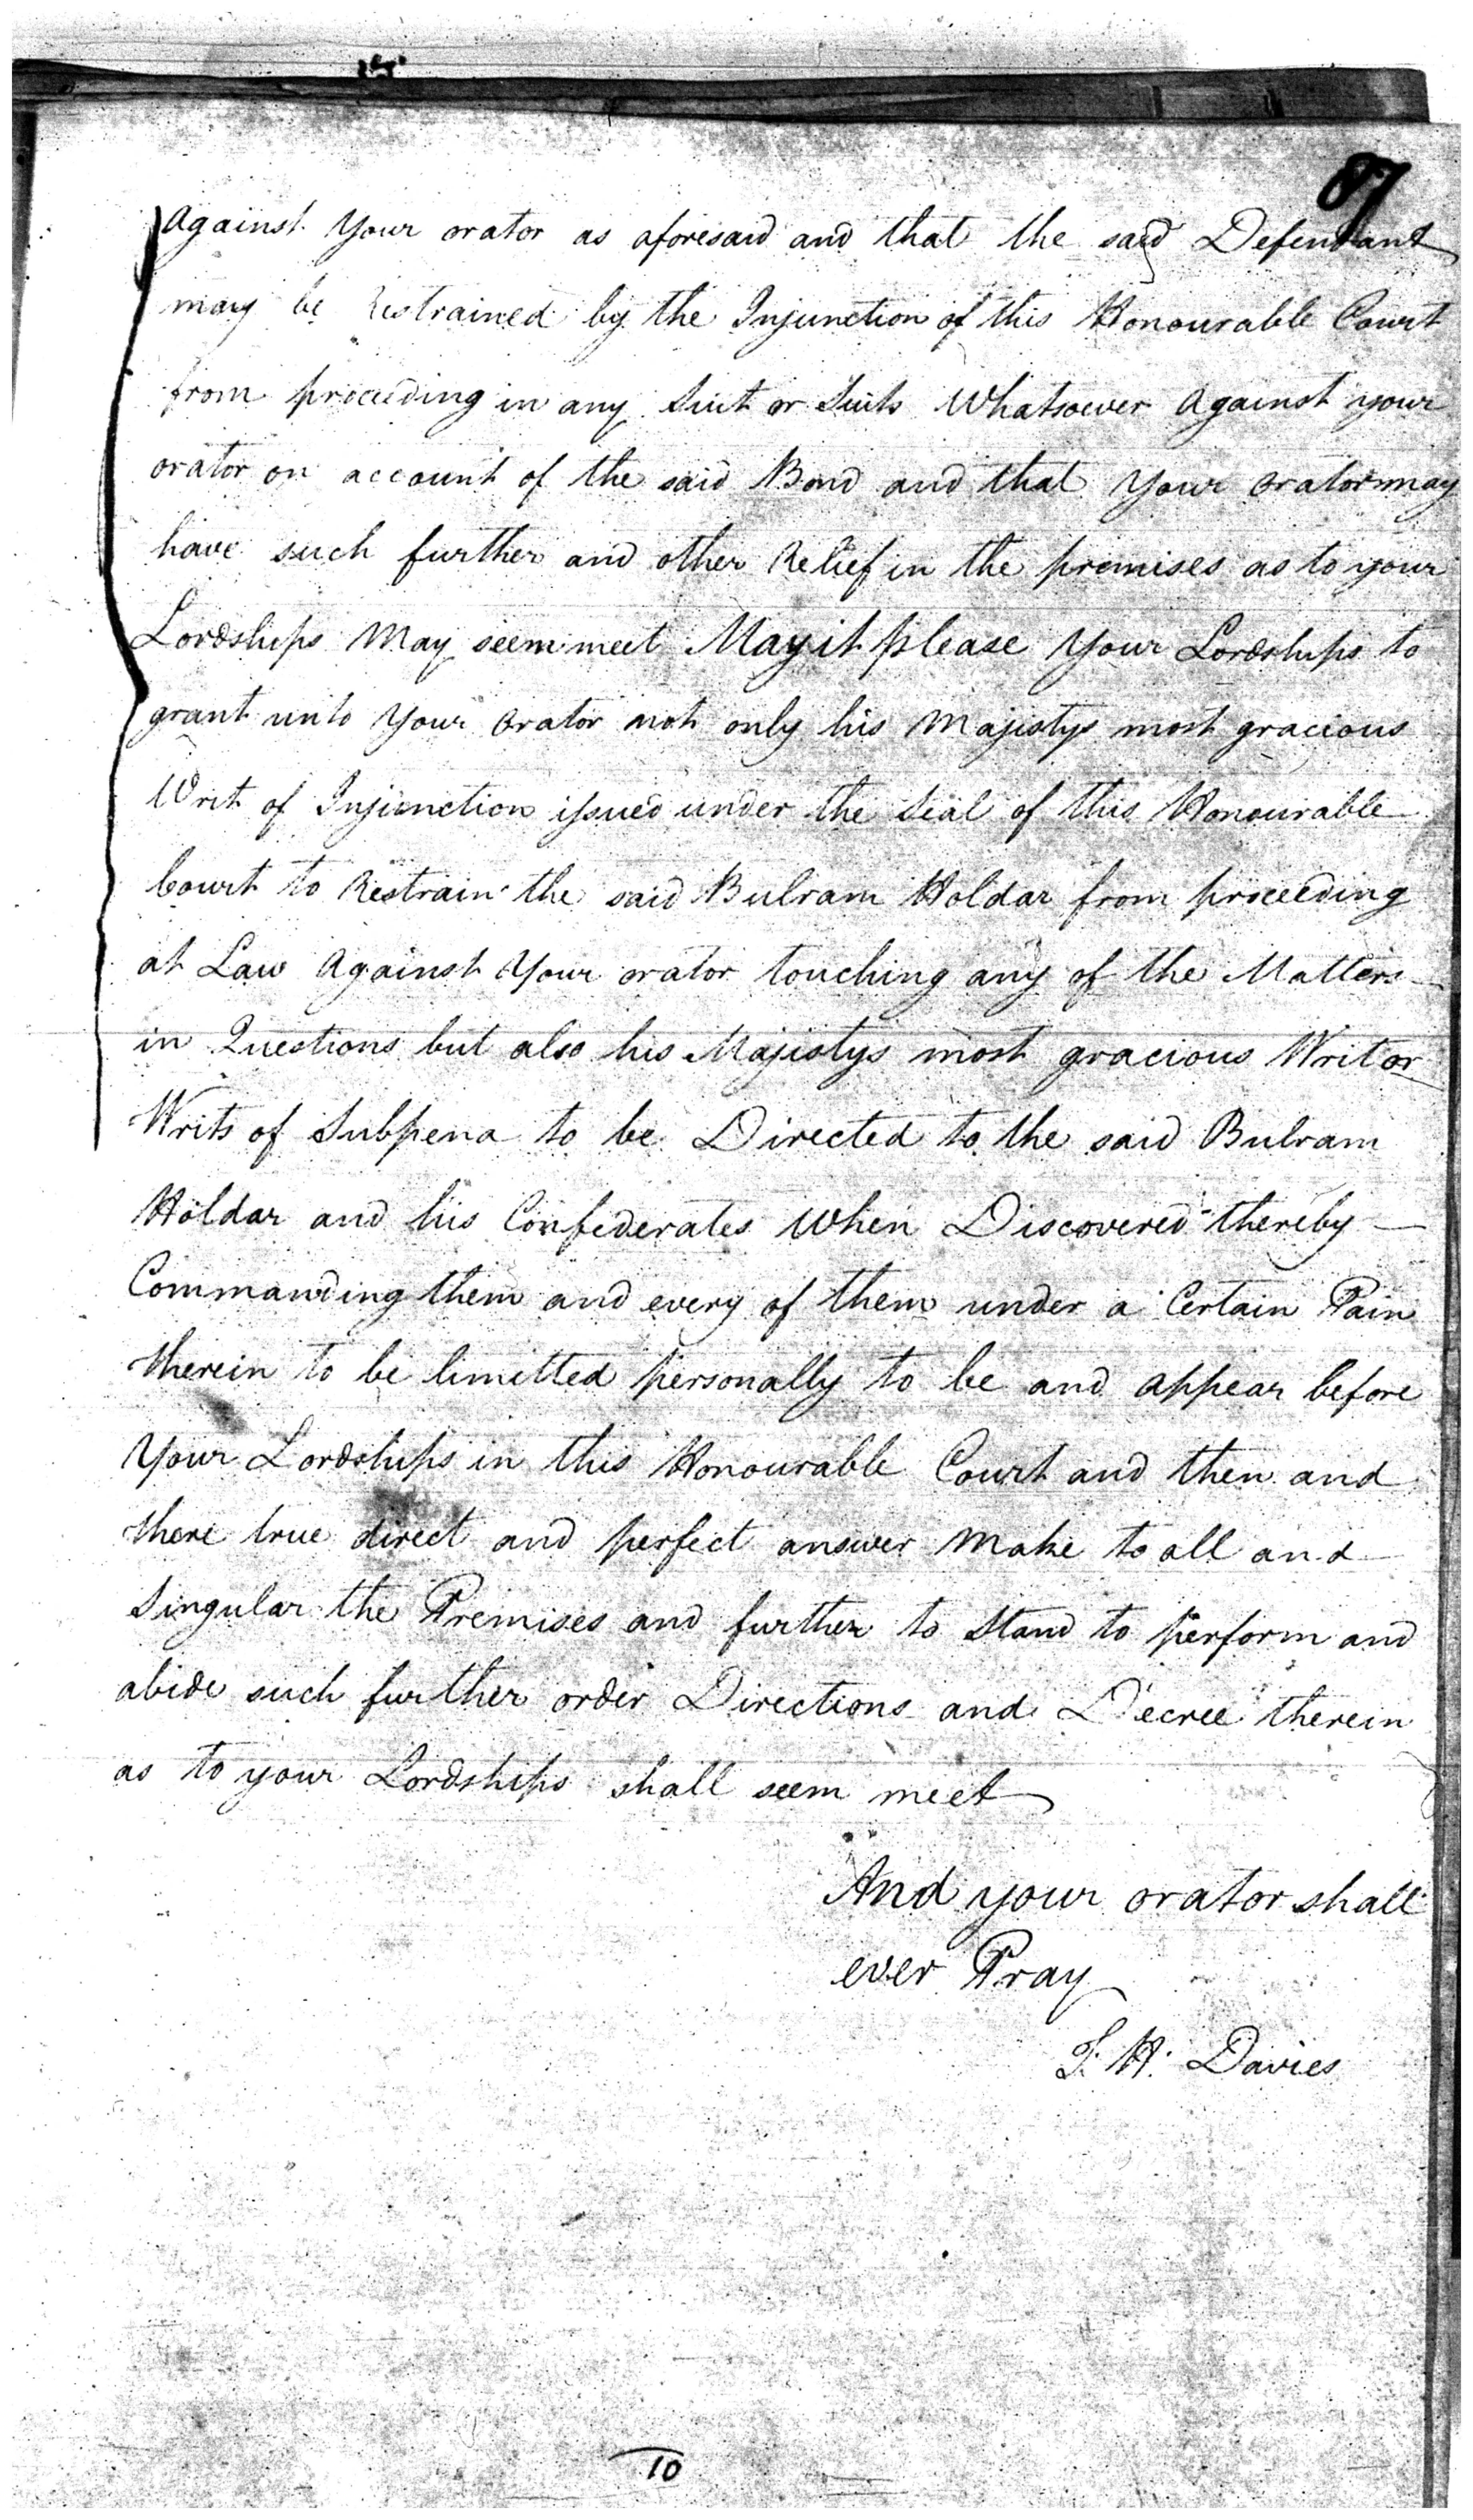 87
Against Your orator as aforesaid and that the said Defendant
may be Restrained by the Injunction of this Honourable Court
from proceeding in any Suit or Suits Whatsoever Against your
orator on account of the said Bond and that Your orator may
have such further and other Relief in the premises as to your
Lordships May seem meet May it please Your Lordships to
grant unto Your orator not only his Majistys most gracious
Writ of Injunction issued under the Seal of this Honourable
Court to Restrain the said Bulram Holdar from proceeding
at Law Against Your orator touching any of the Matters
in Questions but also his Majistys most gracious Writ or
Writs of Subpena to be Directed to the said Bulram
Holdar and his Confederates When Discovered thereby
Commanding them and every of them under a Certain Pain
therein to be limitted personally to be and appear before
Your Lordships in this Honourable Court and then and
there true direct and perfect answer Make to all and
Singular the Premises and further to Stand to perform and
abide such further order Directions and Decree therein
as to your Lordships shall seem meet
And your orator shall
ever Pray
S. H. Davies
10